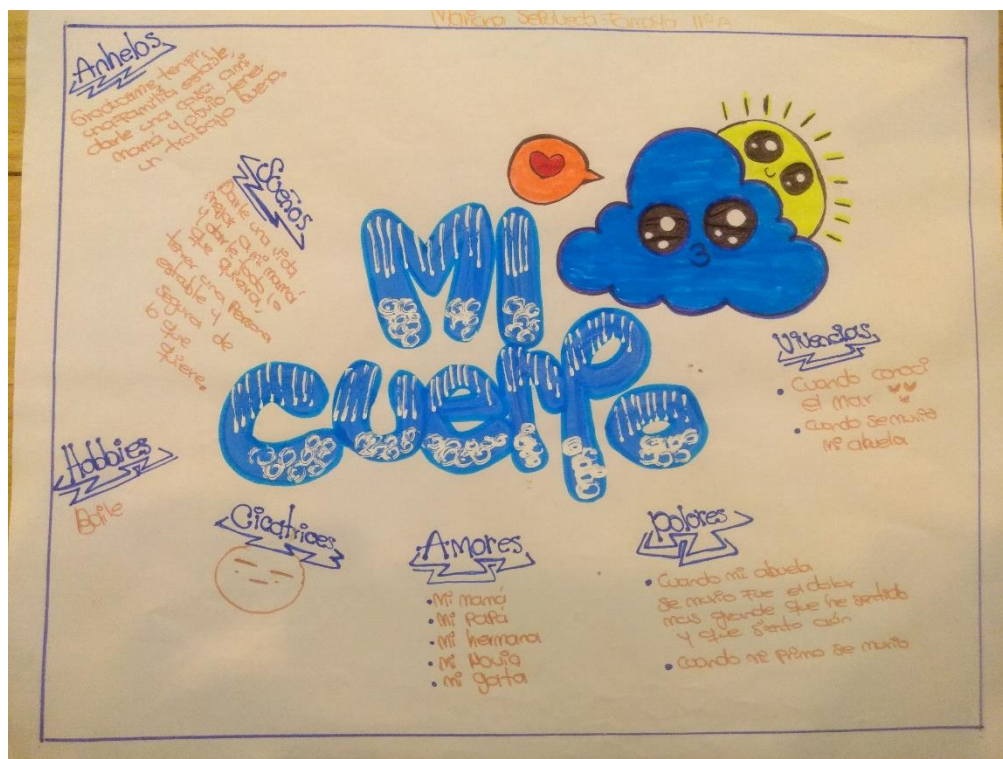 Mariana Sepulveda Tamayo 11°A
Anhelos
Graduarme, tener
una familia estable,
darle una casa a mi
mama y abuilo tener
un trabajo bueno.
Sueños
Darle una vida
mejor a mi mamá
y darle todo lo
que quiera,
tener una persona
estable y
segura de
lo que
quiere.
MI
cuerpo
Vivencias
• Cuando conocí
el mar
• cuando se murio
mi abuela
Hobbies
Baile
Cicatrices
Amores
• Mi mamá
• Mi papá
• Mi hermana
• Mi Novia
• mi gata
Dolores
• Cuando mi abuela
se murio fue el dolor
mas grande que he sentido
y que siento aún
• cuando mi primo se murio